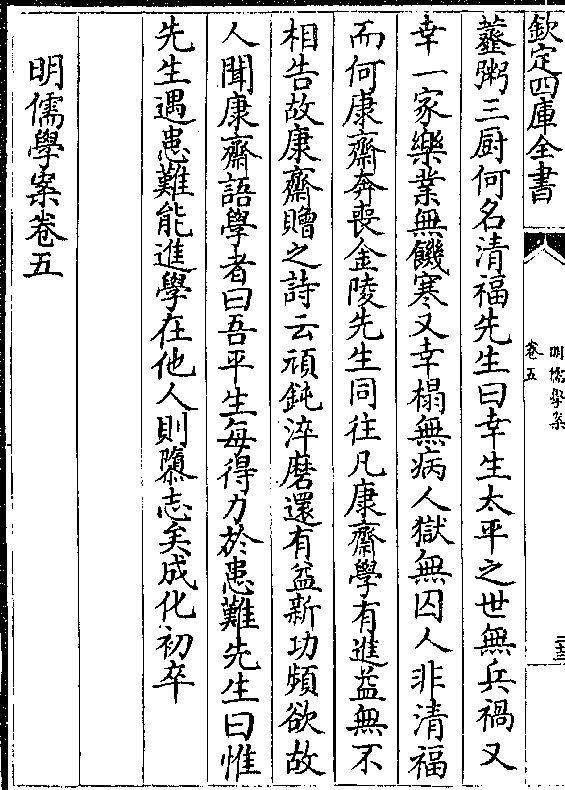 欽定四庫全書
明儒學案
卷五
二十三
虀粥三厨何名清福先生曰幸生太平之世無兵禍又
幸一家樂業無饑寒又幸榻無病人獄無囚人非清福
而何康齋奔喪金陵先生同往凡康齋學有進益無不
相告故康齋贈之詩云頑鈍淬磨還有益新功頻欲故
人聞康齋語學者曰吾平生每得力於患難先生曰惟
先生遇患難能進學在他人則隳志矣成化初卒
明儒學案卷五